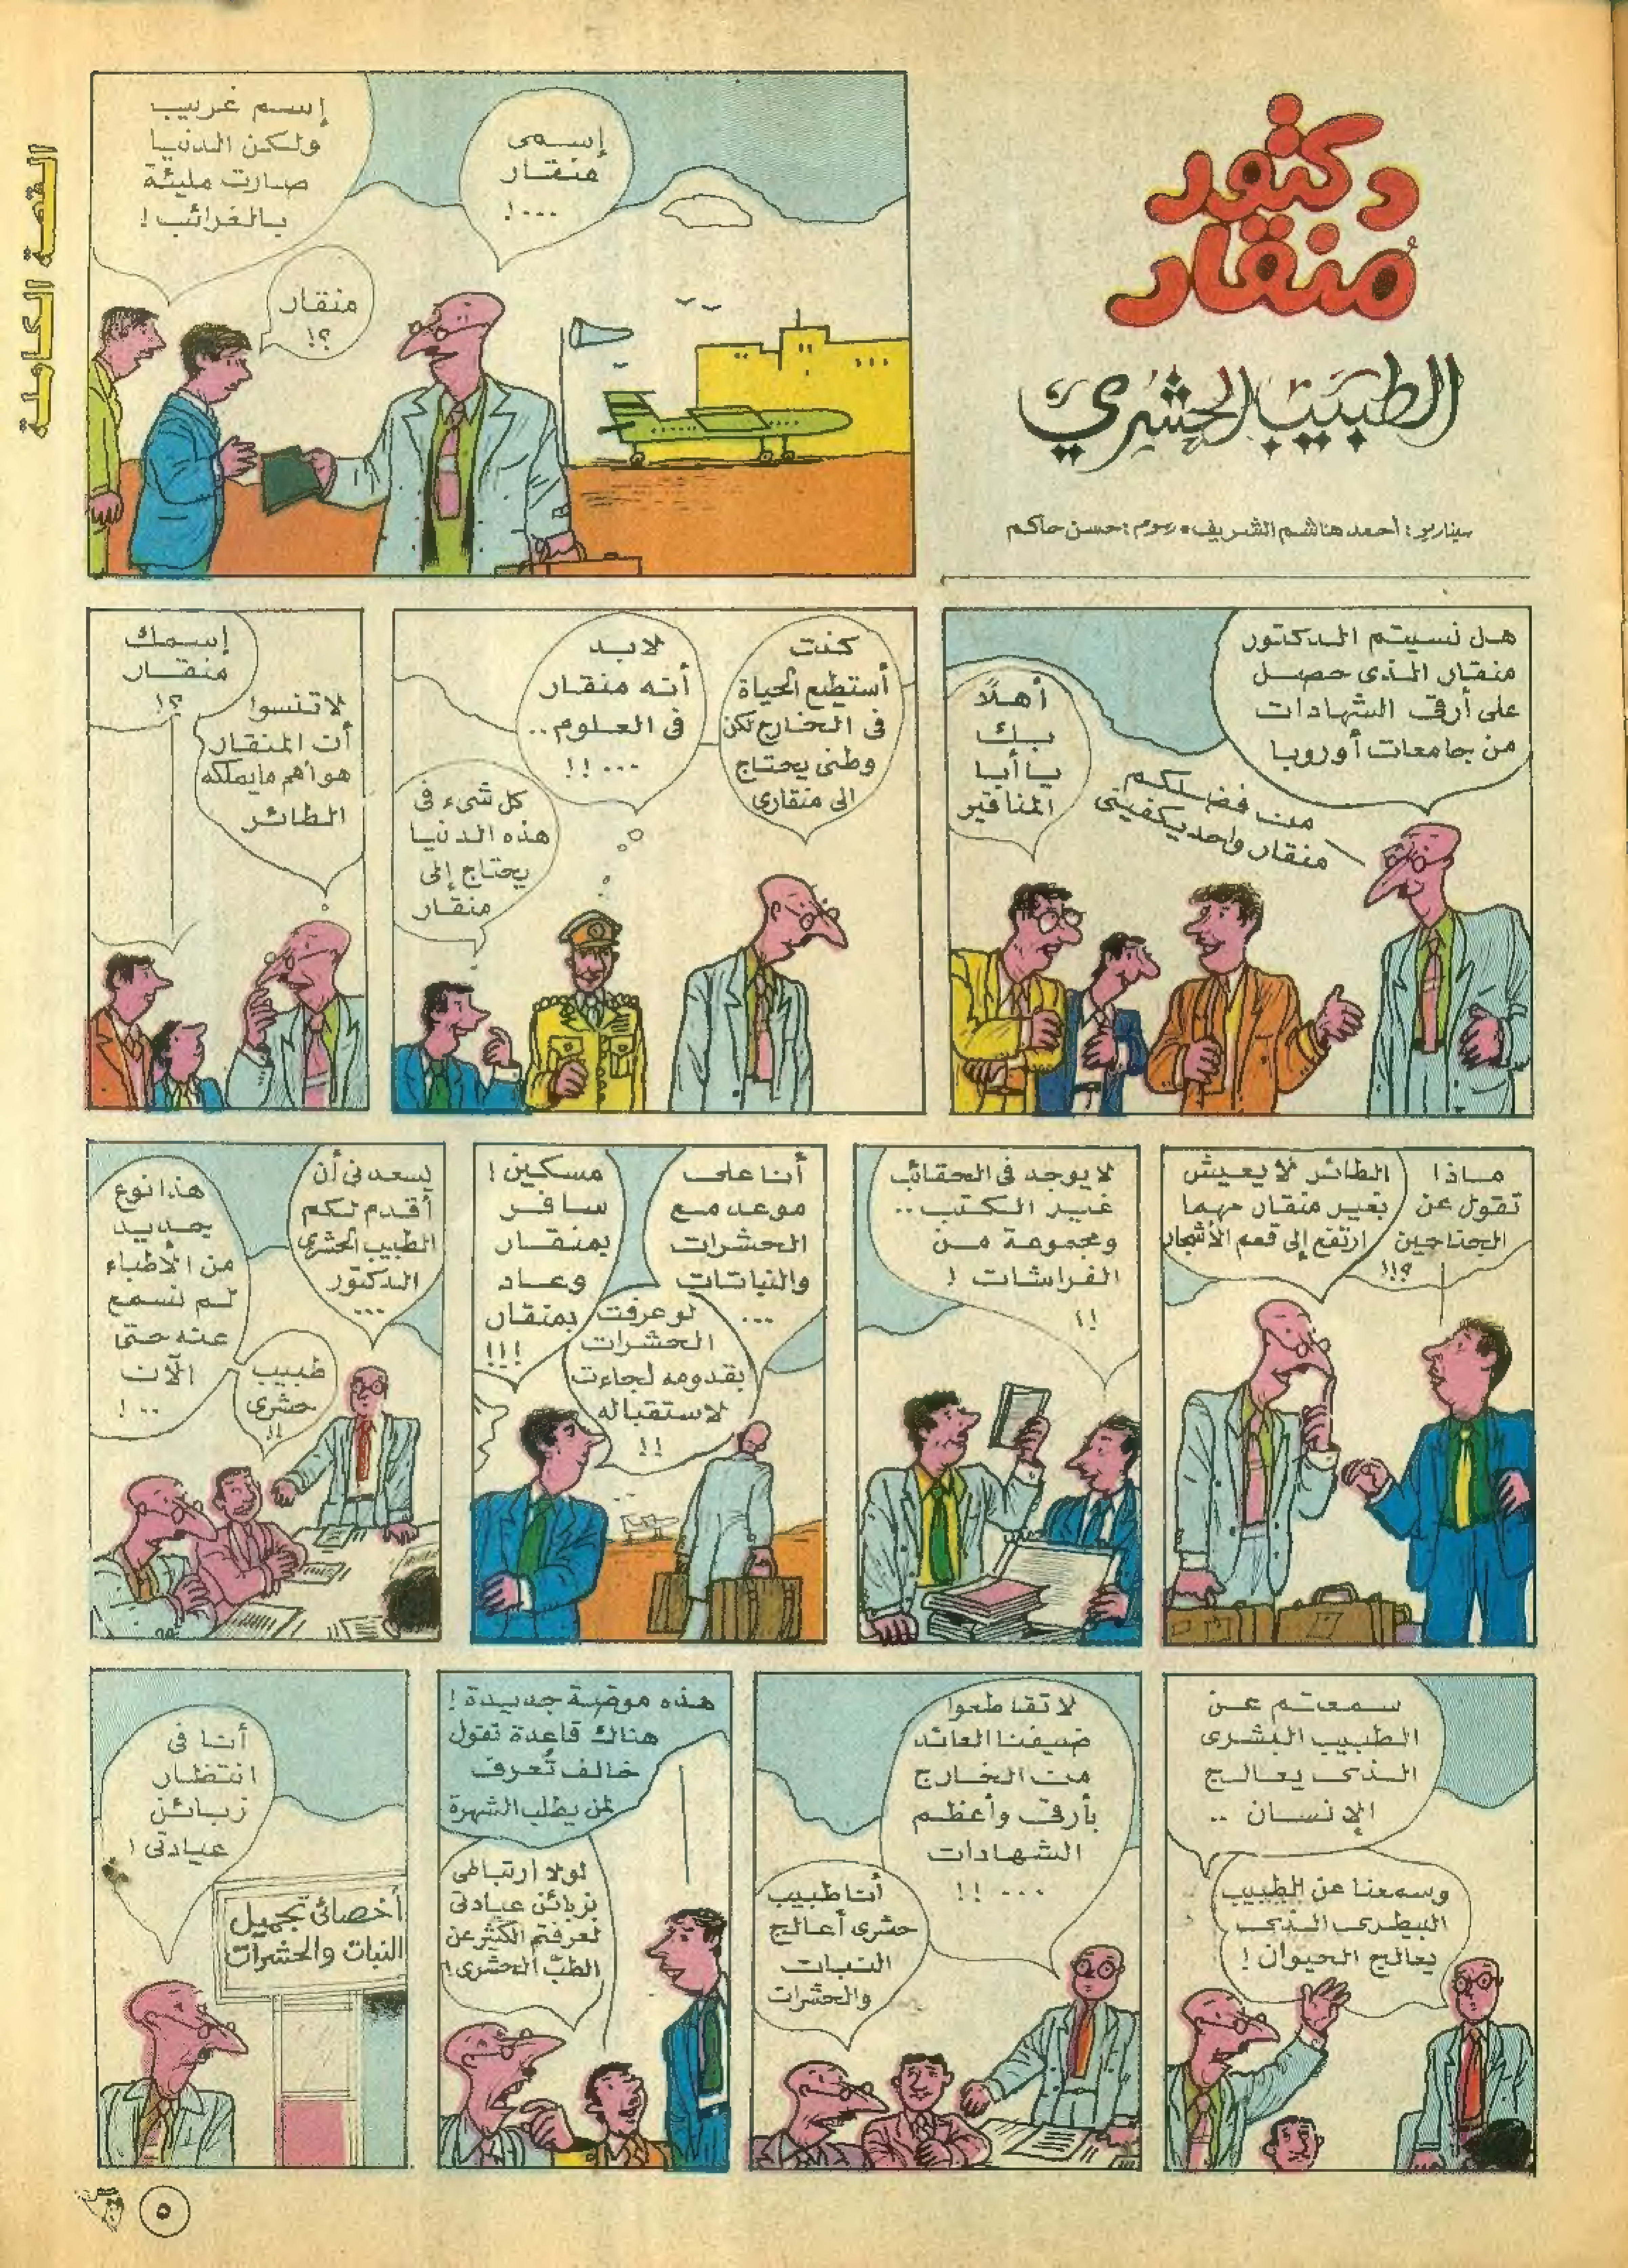 القصة الكاملة
دكتور
مُنقار
الطبيب الحشري
سيناريو: أحمد هاشم الشريف • رسوم: حسن حاكم
إسمى
منقار
...!
منقار
؟!
إسم غريب
ولكن الدنيا
صارت مليئة
بالغرائب!
هل نسيتم الدكتور
منقار الذى حصل
على أرقى الشهادات
من جامعات أوروبا
من فضلكم
منقار واحد يكفينى
أهلاً
بك
يا أبا
المناقير
كنت
أستطيع الحياة
فى الخارج لكن
وطنى يحتاج
الى منقارى
لابد
أنه منقار
فى العلوم..
...!!
كل شىء فى
هذه الدنيا
يحتاج إلى
منقار
إسمك
منقار
؟!
لا تنسوا
أن المنقار
هو أهم مايملكه
الطائر
ماذا
تقول عن
الجناحين
؟!!
الطائر لا يعيش
بغير منقار مهما
ارتفع إلى قمم الأشجار
لا يوجد فى الحقائب
غير الكتب..
ومجموعة من
الفراشات !
!!
أنا على
موعد مع
الحشرات
والنباتات
...
مسكين!
سافر
بمنقار
وعاد
بمنقار
!!!
لو عرفت
الحشرات
بقدومه لجاءت
لاستقباله
!!
يسعدنى أن
أقدم لكم
الطبيب الحشرى
الدكتور
...
طبيب
حشرى
!!
هذا نوع
جديد
من الأطباء
لم نسمع
عنه حتى
الآن
..!
سمعتم عن
الطبيب البشرى
الذى يعالج
الإنسان ..
وسمعنا عن الطبيب
البيطرى الذى
يعالج الحيوان !
لا تقاطعوا
ضيفنا العائد
من الخارج
بأرقى وأعظم
الشهادات
...!!
أنا طبيب
حشرى أعالج
النبات
والحشرات
هذه موضة جديدة!
هناك قاعدة تقول
خالف تُعرف
لمن يطلب الشهرة
لولا ارتباطى
بزبائن عيادتى
لعرفتم الكثير عن
الطب الحشرى!
أنا فى
انتظار
زبائن
عيادتى!
أخصائى تجميل
النبات والحشرات
٥